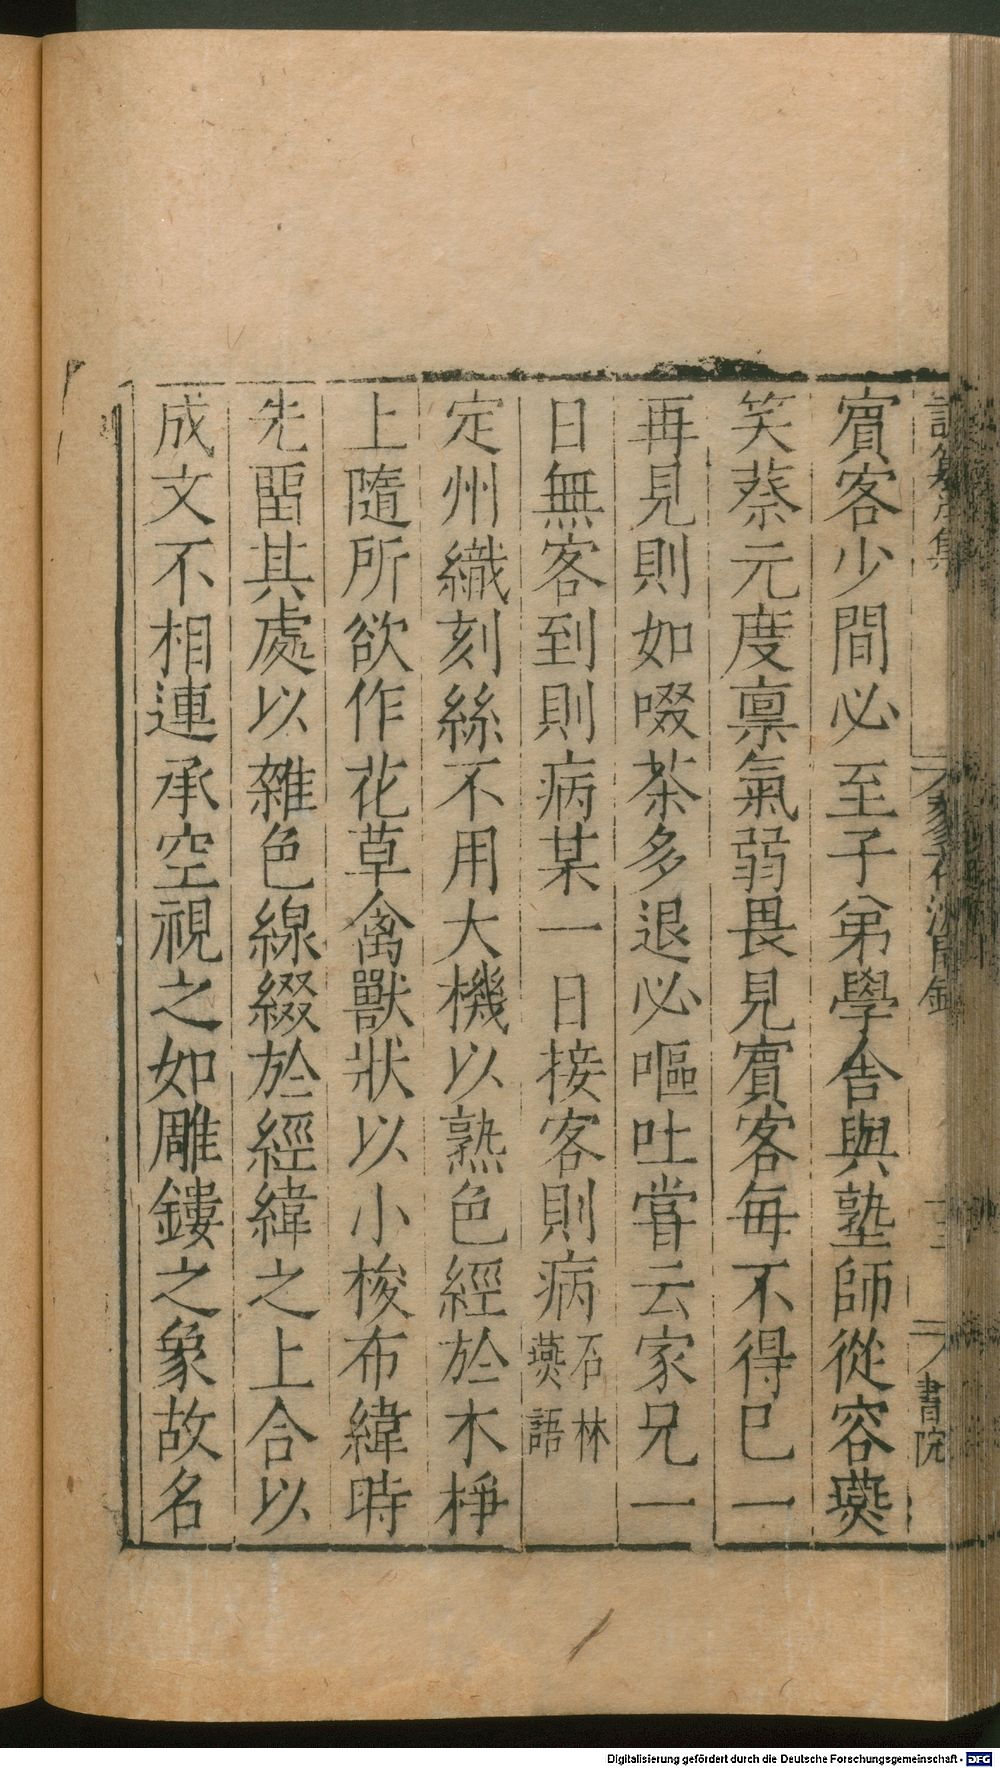 賔客少間必至子弟學舎與塾師從容䜩
笑蔡元度禀氣弱畏見賔客每不得已一
再見則如啜茶多退必嘔吐嘗云家兄一
日無客到則病某一日接客則病石林燕語
定州織刻絲不用大機以熟色經於木棦
上隨所欲作花草禽獸狀以小梭布緯時
先畱其處以雜色線綴於經緯之上合以
成文不相連承空視之如雕鏤之象故名
書院
Digitalisierung gefördert durch die Deutsche Forschungsgemeinschaft - DFG